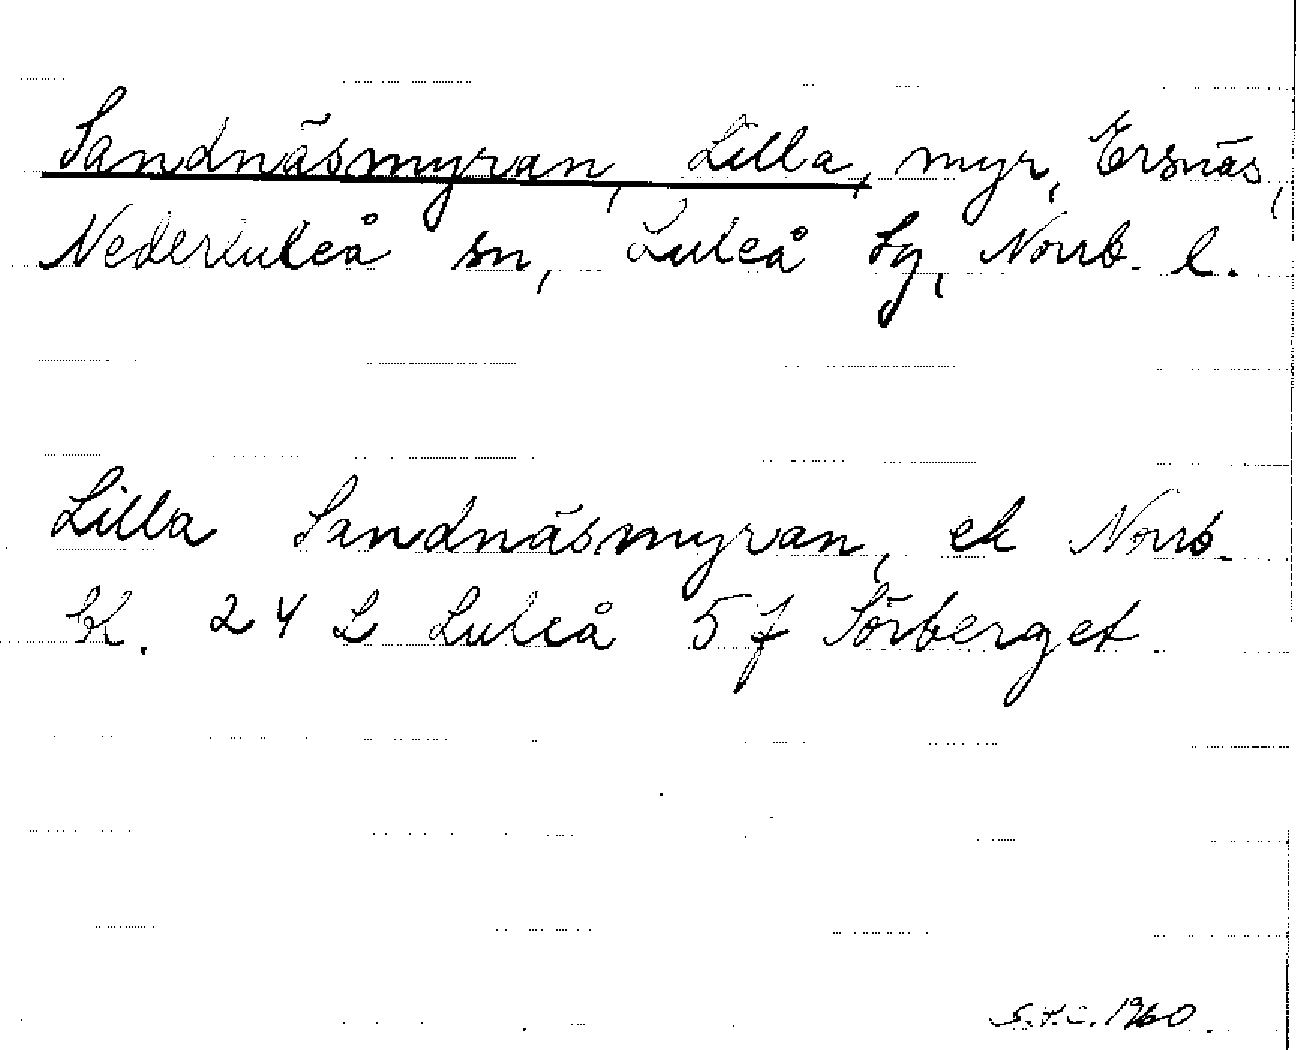 Sandnäsmyran, Lilla, myr, Ersnäs,
Nederluleå sn, Luleå sg, Norrb. l.
Lilla Sandnäsmyran, ek Norrb.
bl. 24 L Luleå 5 f Sörberget
1960.